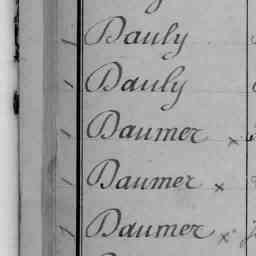 Dauly
Dauly
Daumer x
Daumer x
Daumer x